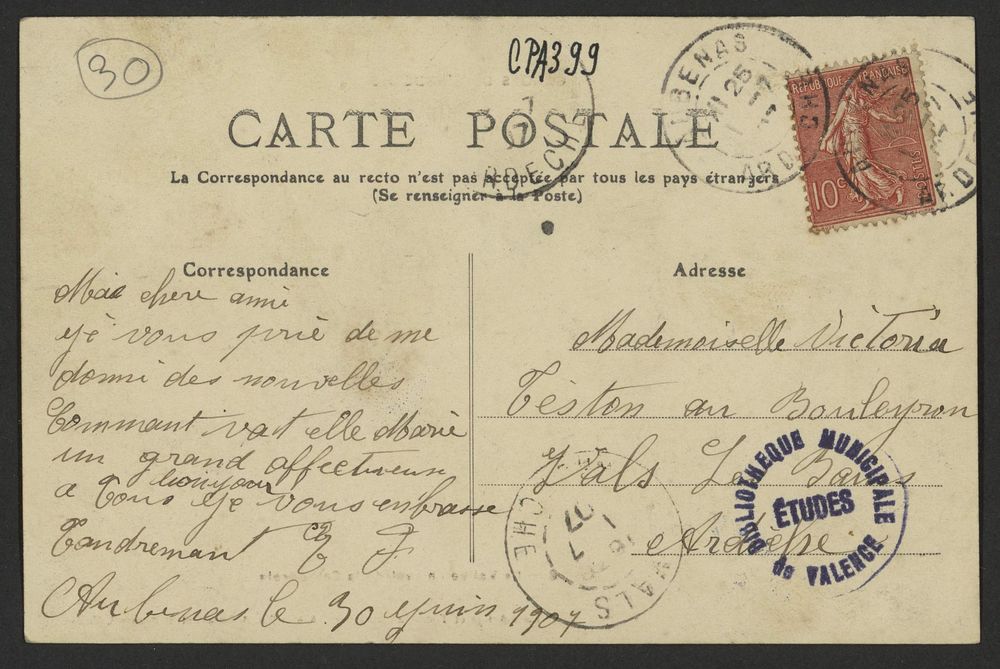 30
CPA399
CARTE POSTALE
La Correspondance au recto n'est pas acceptée par tous les pays étrangers
(Se renseigner à la Poste)
AUBENAS
ARDÈCHE
REPUBLIQUE FRANÇAISE
POSTES
10c
ARDECHE
Correspondance
Mai chere ami
Je vous prie de me
donné des nouvelles
Commant vat elle Marie
un grand affectueux
bonjour
a tous je vous enbrasse
Tandremant
Aubenas le 30 juin 1907
Adresse
Mademoiselle Victoria
Teston au Bouleyron
Vals Les Bains
Ardèche
VALS
BIBLIOTHEQUE MUNICIPALE
ÉTUDES
de VALENCE